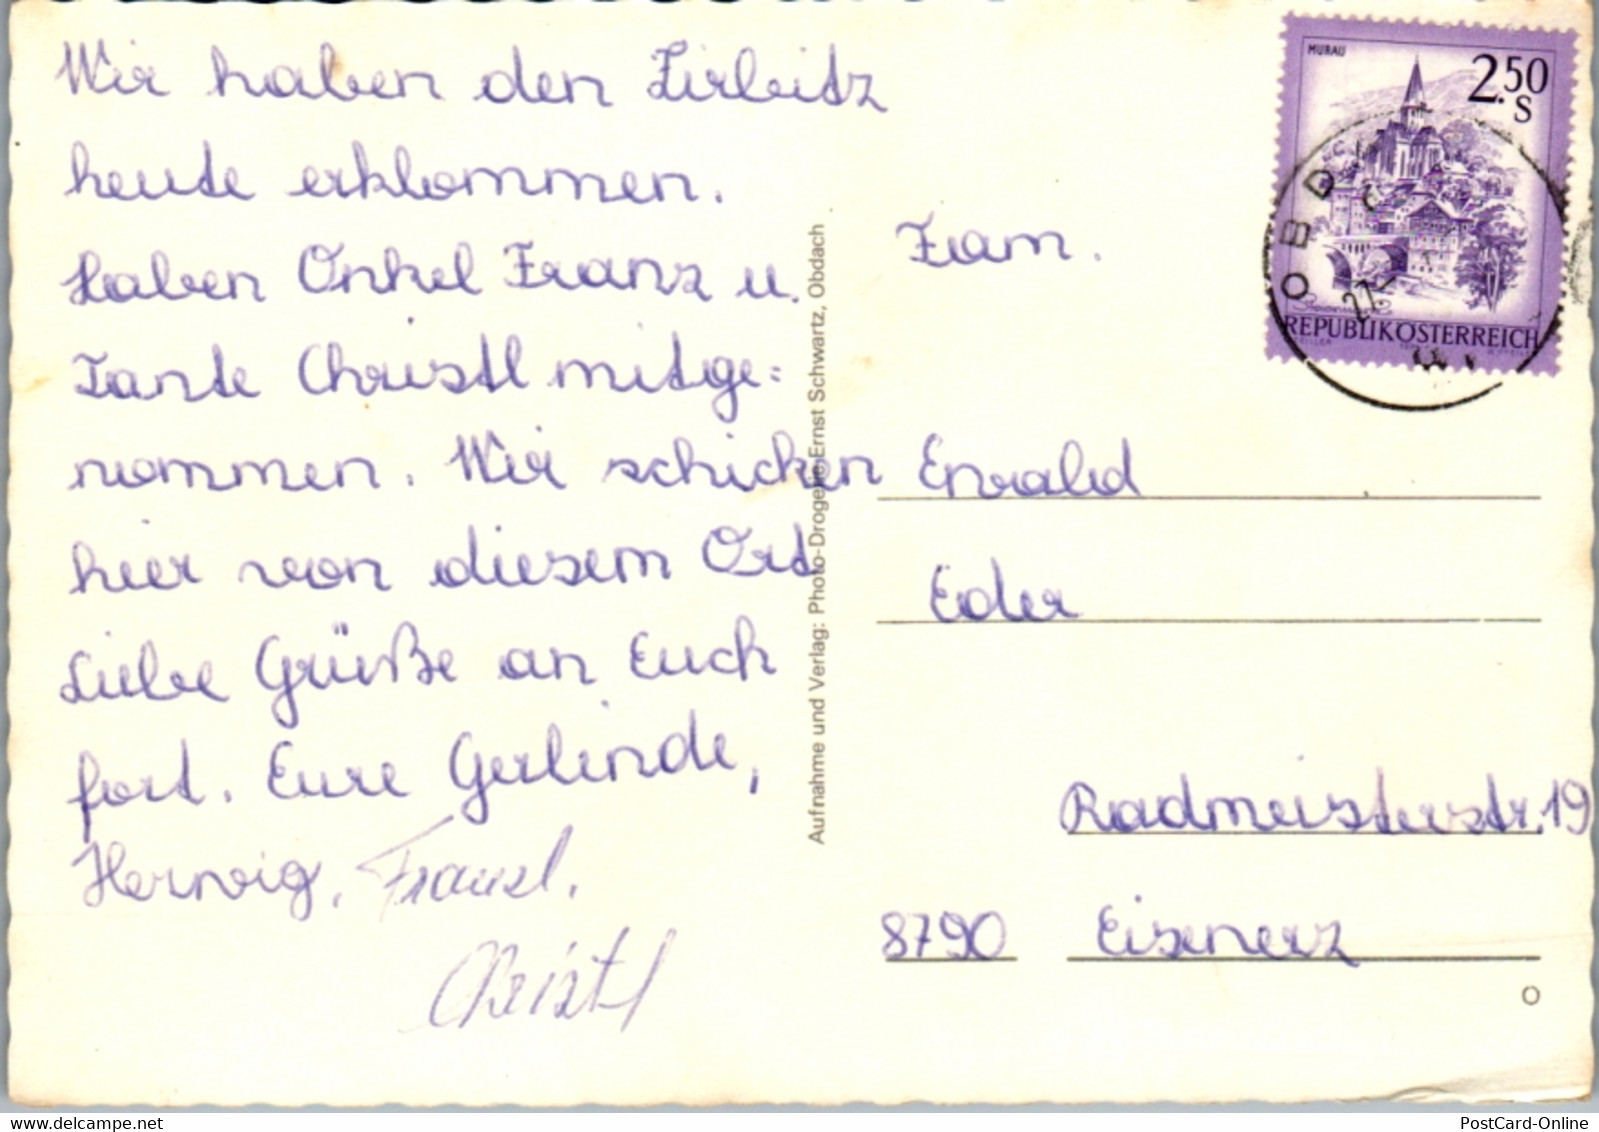 Wir haben den Zirbitz
heute erklommen.
Haben Onkel Franz u.
Tante Christl mitge=
nommen. Wir schicken
hier von diesem Ort
Liebe Grüße an Euch
fort. Eure Gerlinde,
Herwig, Franzl.
Christl
Aufnahme und Verlag: Photo-Drogerie Ernst Schwartz, Obdach
MURAU
2.50
S
REPUBLIK ÖSTERREICH
OBD
27
Fam.
Ewald
Eder
Radmeisterstr. 19
8790 Eisenerz
O
www.delcampe.net
PostCard-Online